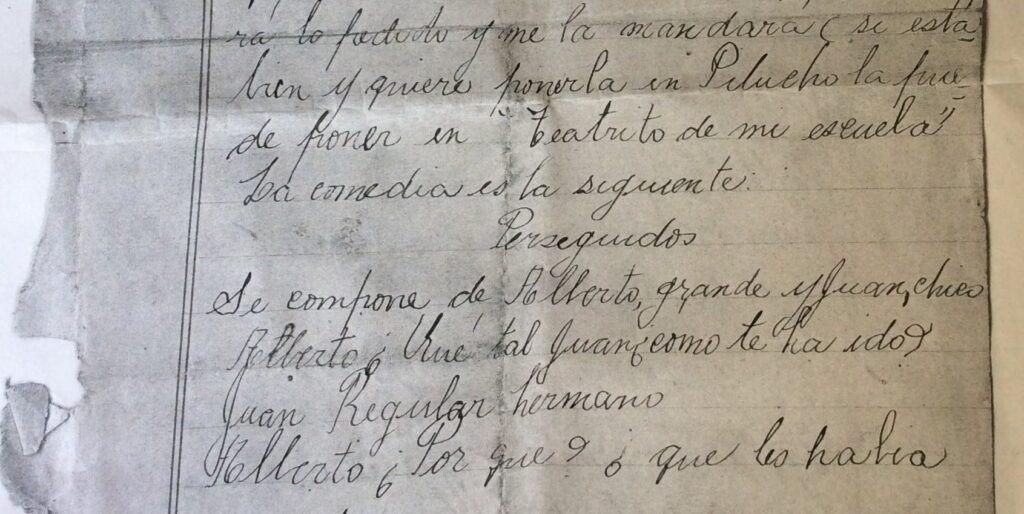 rá lo pedido y me la mandará (si está
bien y quiere ponerla en Pilucho la pue-
de poner en "Teatrito de mi escuela"
La comedia es la siguiente:
Perseguidos
Se compone de Alberto, grande y Juan, chico
Alberto ¿Qué tal Juan ¿como te ha ido?
Juan Regular hermano
Alberto ¿Por que? ¿que les habia